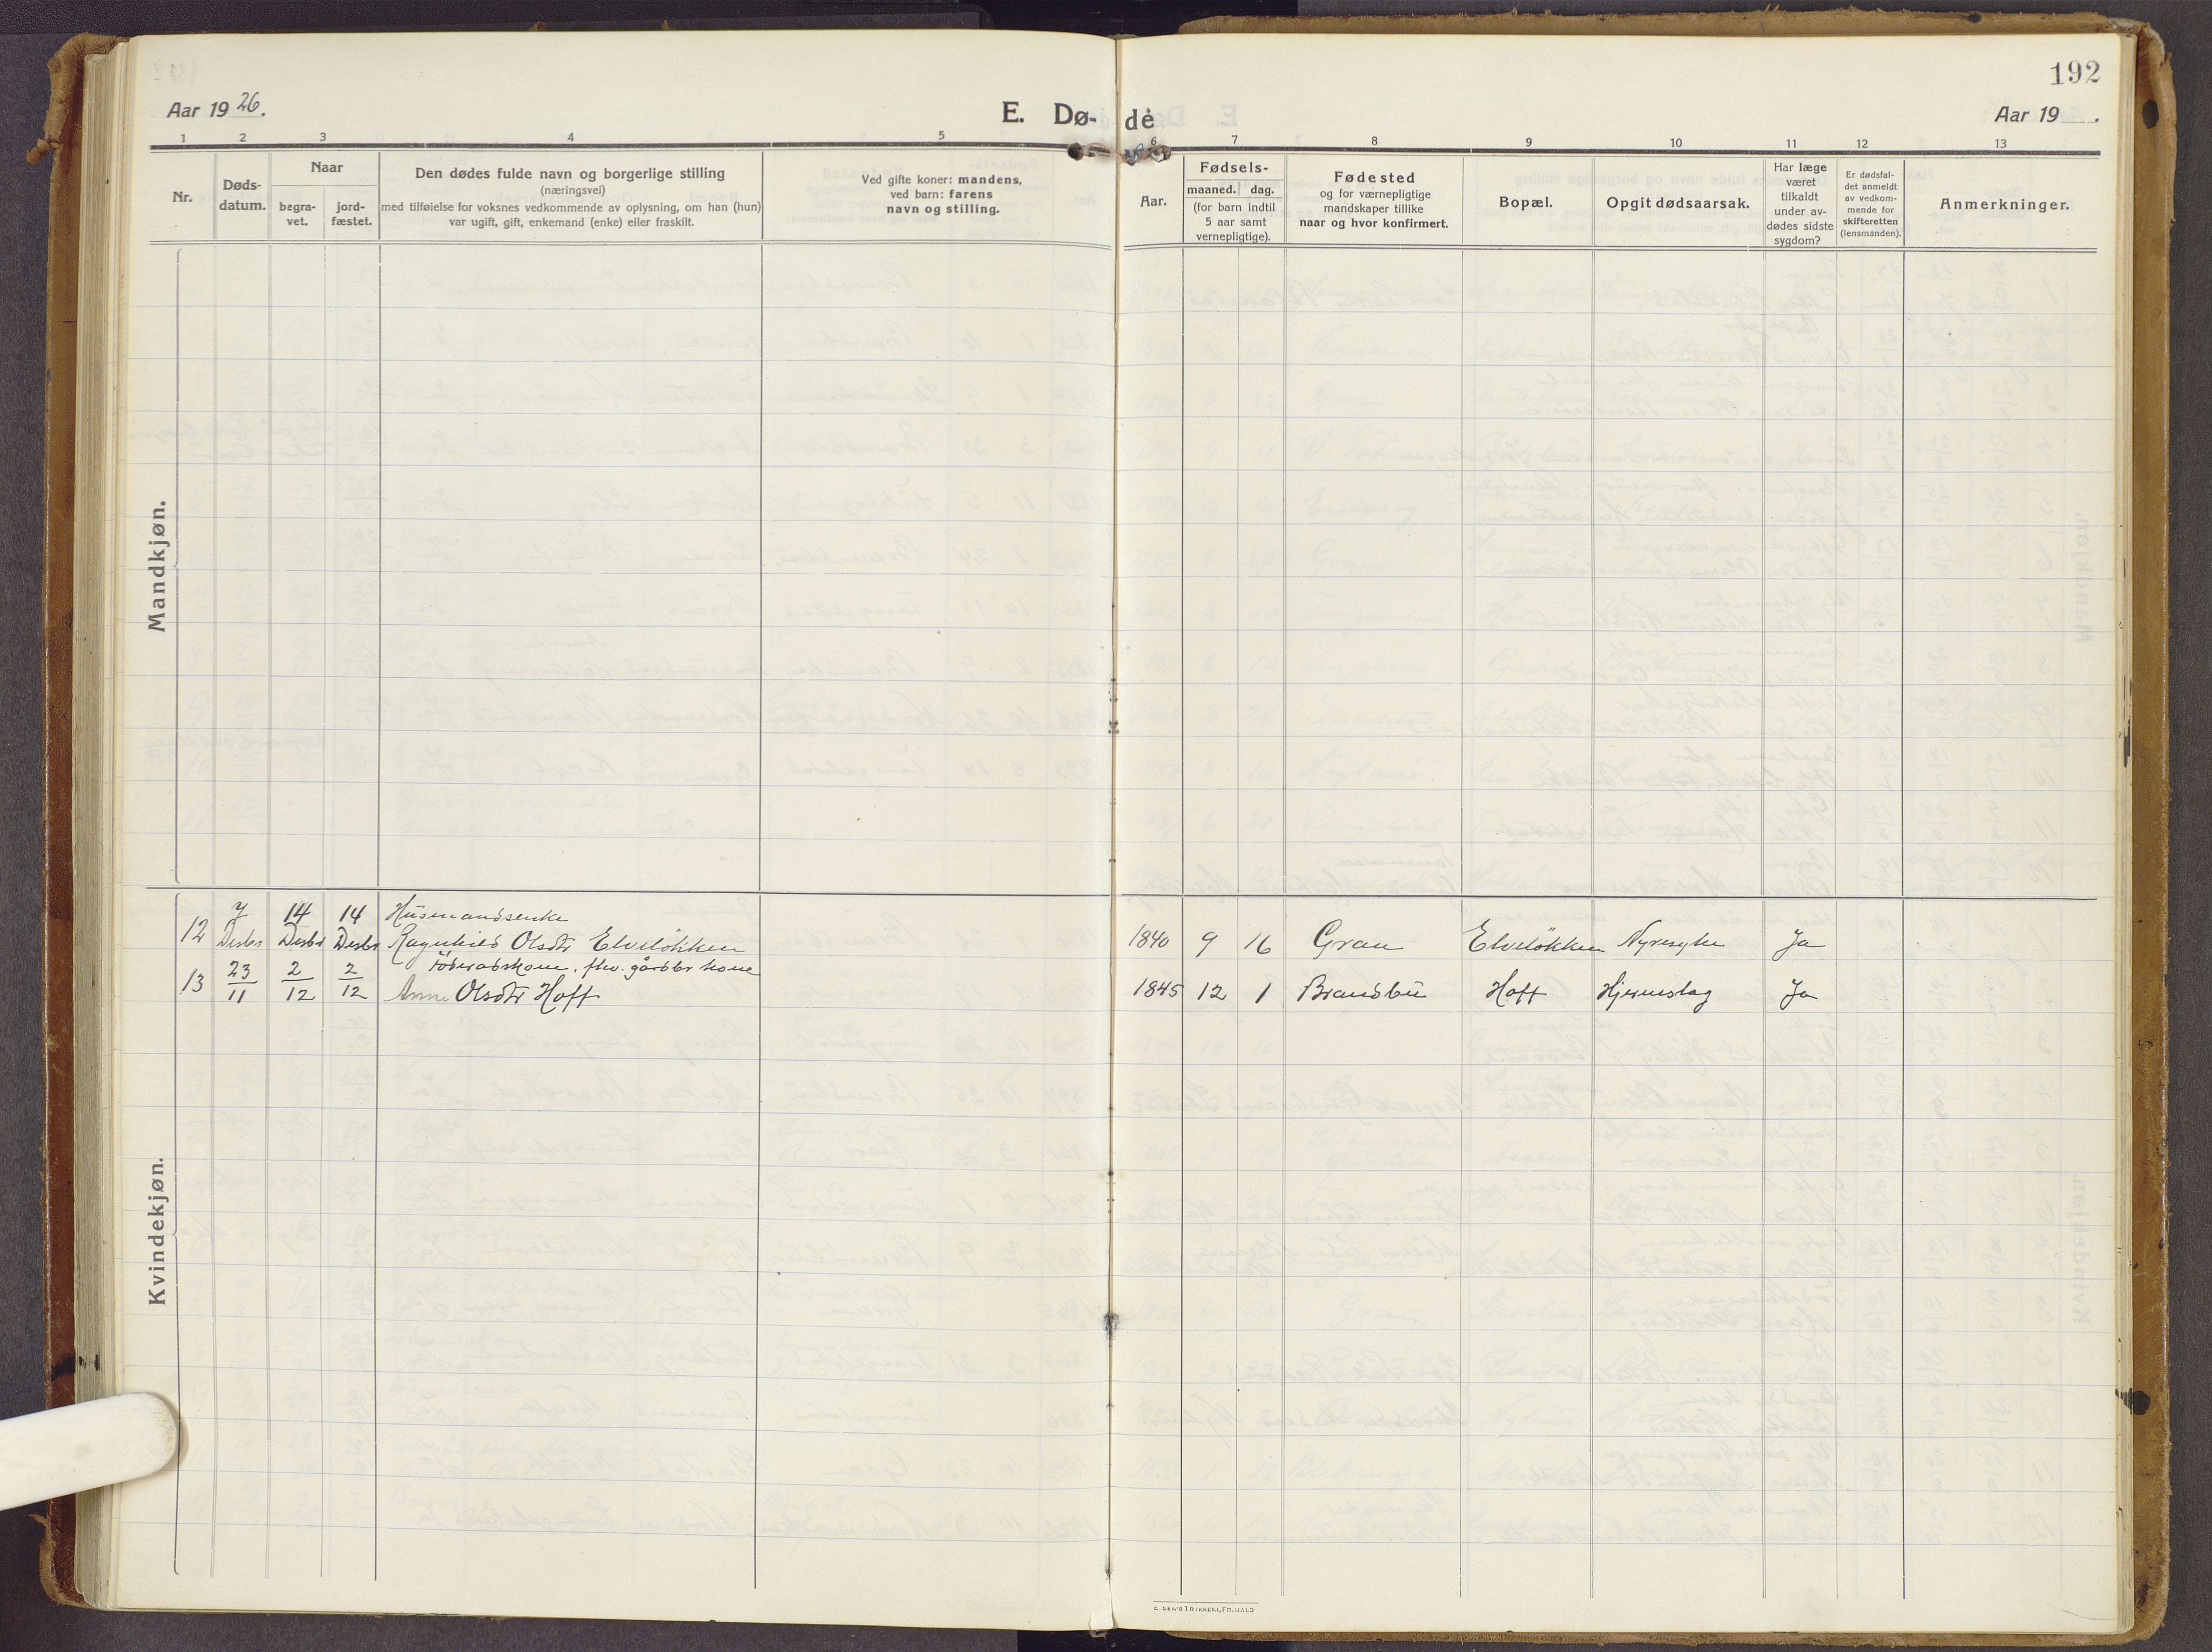 192
Aar 1926.
E. Dø- de
Aar 19 .
1 2 3 4 5 6 7 8 9 10 11 12 13
Nr.
Døds-
datum.
Naar
begra-
vet.
jord-
fæstet.
Den dødes fulde navn og borgerlige stilling
(næringsvei)
med tilføielse for voksnes vedkommende av oplysning, om han (hun)
var ugift, gift, enkemand (enke) eller fraskilt.
Ved gifte koner: mandens,
ved barn: farens
navn og stilling.
Aar.
Fødsels-
maaned. dag.
(for barn indtil
5 aar samt
vernepligtige).
Fødested
og for værnepligtige
mandskaper tillike
naar og hvor konfirmert.
Bopæl.
Opgit dødsaarsak.
Har læge
været
tilkaldt
under av-
dødes sidste
sygdom?
Er dødsfal-
det anmeldt
av vedkom-
mende for
skifteretten
(lensmanden).
Anmerkninger.
Mandkjøn.
Kvindekjøn.
7 14 14 Husmandsenke
12 Desbr Desbr Desbr Ragnhild Olsdtr Elveløkken 1840 9 16 Gran Elveløkken Nyresyke Ja
Føderådskone, fhv. gårdbr kone
13 23/11 2/12 2/12 Anne Olsdtr Hoff 1845 12 1 Brandbu Hoff Hjerneslag Ja